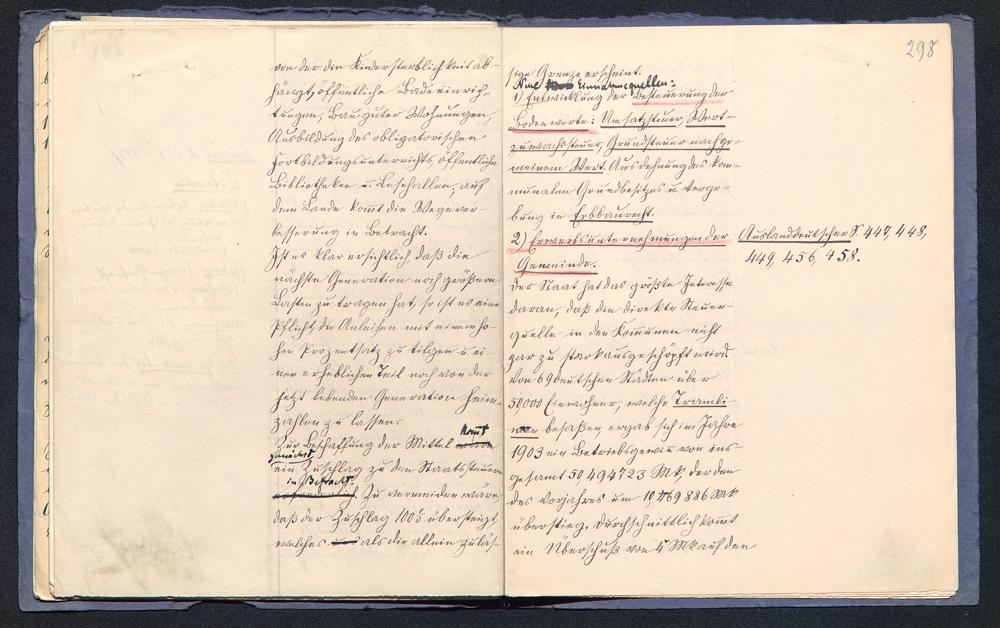 von der die Kindersterblichkeit ab-
hängt, öffentliche Badeeinrich-
tungen, Bau guter Wohnungen,
Ausbildung des obligatorischen
Fortbildungsunterrichts, öffentliche
Bibliotheken u. Lesehallen, auf
dem Lande komt die Wegever-
besserung in Betracht.
Ist es klar ersichtlich daß die
nächste Generation noch größere
Lasten zu tragen hat, so ist es eine
Pflicht, die Anleihen mit einem ho-
hen Prozentsatz zu tilgen u. ei-
nen erheblichen Teil noch von der
jetzt lebenden Generation heim-
zahlen zu lassen.
Zur Beschaffung der Mittel komt
zunächst
ein Zuschlag zu den Staatssteuern
in Betracht.
Zu vermeiden wäre,
daß der Zuschlag 100% übersteigt,
welches als die allein zuläs-
298
sige Grenze erscheint.
Neue Einnahmequellen:
1) Entwicklung der Besteuerung der
Bodenwerte: Umsatzsteuer, Wert-
zuwachssteuer, Grundsteuer nach ge-
meinem Wert. Ausdehnung des kom-
munalen Grundbesitzes u. Verge-
bung in Erbbaurecht.
2) Erwerbsunternehmungen der
Gemeinde.
Auslanddeutscher S. 447, 448,
449, 456, 458.
Der Staat hat das größte Interesse
daran, daß die direkte Steuer-
quelle in den Kommunen nicht
gar zu stark ausgeschöpft wird
Von 69 deutschen Städten über
50000 Einwohner, welche Tramli-
nien besaßen, ergab sich im Jahre
1903 ein Betriebsgewinn von ins-
gesamt 50,494723 Mk, der den
des Vorjahres um 10,469836 Mk
überstieg. Durchschnittlich komt
ein Überschuß von 4 Mk auf den